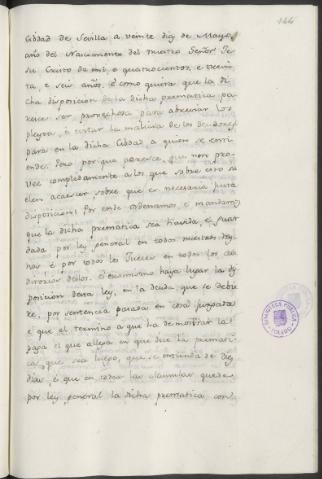 144
Cibdad de Sevilla a veinte dias de Mayo,
año del Nascimiento del nuestro Señor Je
su Cristo de mil, e quatrocientos, e trein
ta, e seis años. E como quiera que la di
cha disposicion de la dicha prematica pa
resce ser provechosa para abreviar los
pleytos, è evitar la malicia de los deudores
para en la dicha Cibdad a quien se enti
ende: Pero por que paresce, que non pro
vee complidamente a los que sobre esto sue
len acaescer, sobre que es necesaria justa
disposicion: Por ende ordenamos, e mandamos
que la dicha prematica sea havida, e guar
dada por ley general en todos nuestros Rey
nos è por todos los Jueces en todos los
dellos. E otrosi haya lugar la dis
posicion desta ley, en la deuda que se debie
re, por sentencia pasada en cosa juzgada
e que el termino a que ha de mostrar la
paga el que allega en que dice la prematica
que sea luego, que se entienda de diez
dias, è que en todas las quede
por ley general la dicha prematica con
BIBLIOTECA PUBLICA
TOLEDO